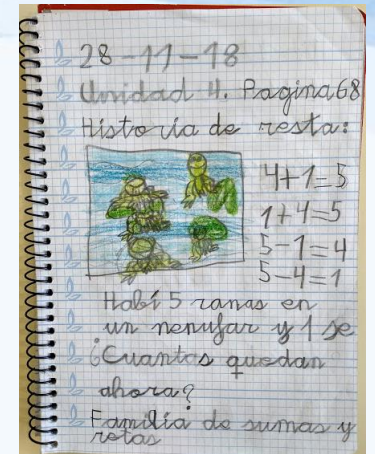 28-11-18
Unidad 4. Pagina 68
Historia de resta:
4+1=5
1+4=5
5-1=4
5-4=1
Habí 5 ranas en
un nenufar y 1 se
¿Cuantas quedan
ahora?
Familia de sumas y
retas